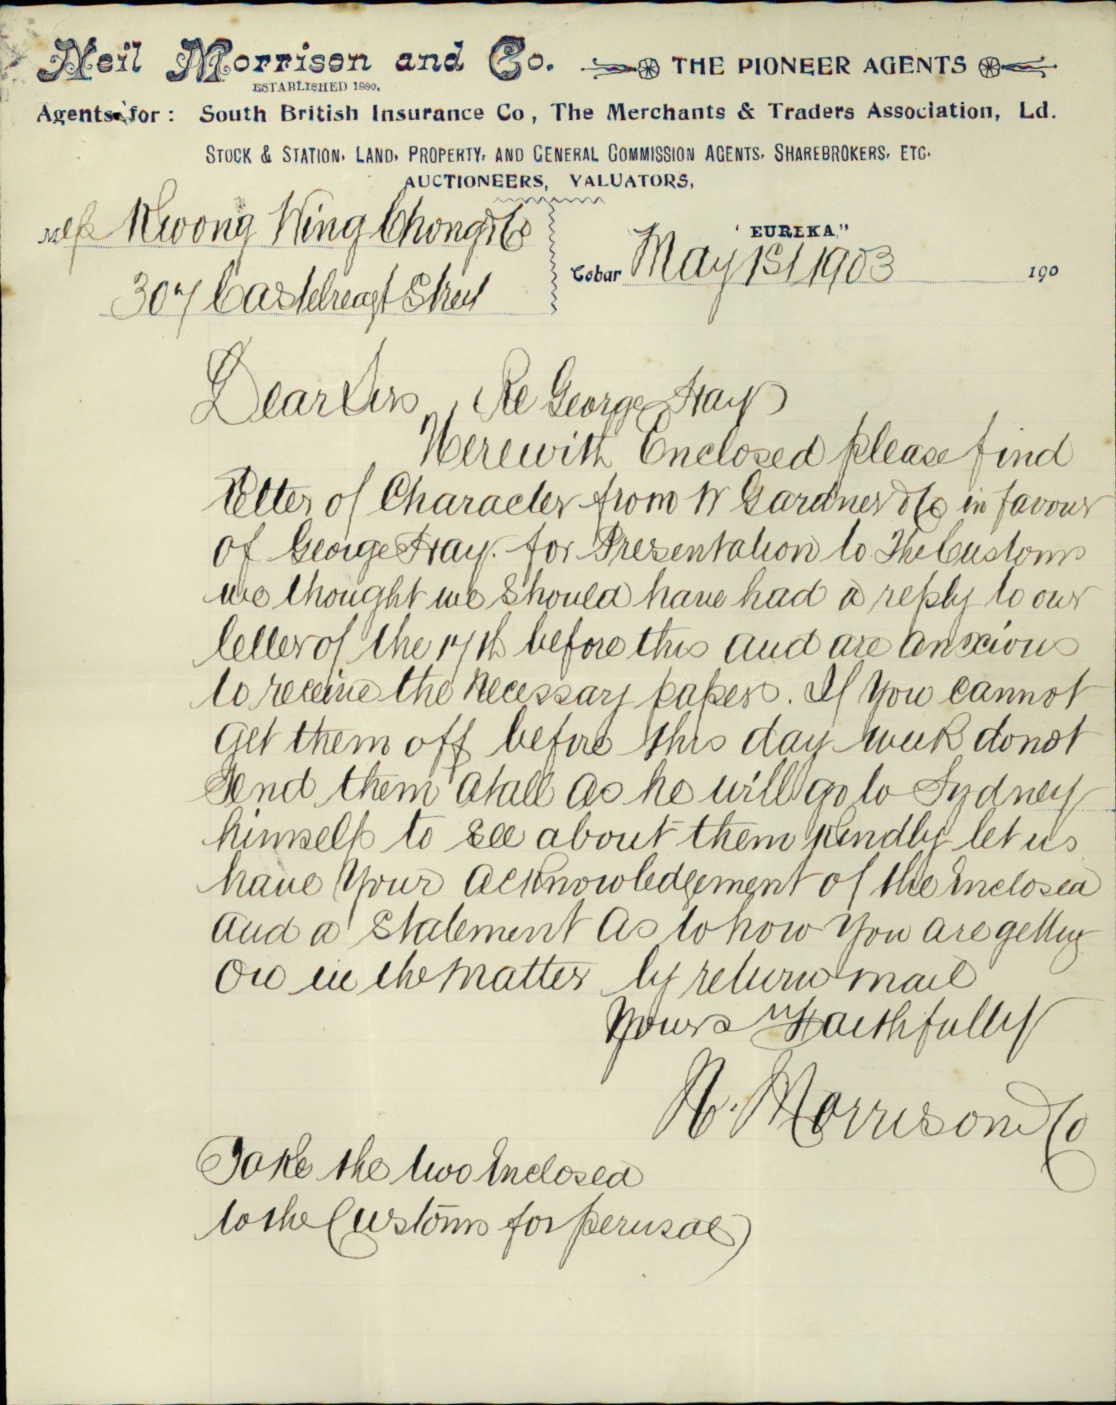 Neil Morrison and Co. THE PIONEER AGENTS
ESTABLISHED 1890.
Agents for: South British Insurance Co, The Merchants & Traders Association, Ld.
STOCK & STATION, LAND, PROPERTY, AND GENERAL COMMISSION AGENTS, SHAREBROKERS, ETC.
AUCTIONEERS, VALUATORS,
Mess Kwong Wing Chong & Co
307 Castelreagt Street
"EUREKA"
Cobar May 1st 1903 190
Dear Sirs, Re George Hay
Herewith Enclosed please find
letter of Character from W Gardner & Co in favour
of George Hay. for Presentation to The Customs
we thought we should have had a reply to our
letter of the 17th before this and are anxcious
to receive the necessary papers. If you cannot
get them off before this day week do not
send them atall as he will go to Sydney
himself to see about them Kindly let us
have your acknowledgement of the Enclosed
and a statement as to how you are getting
on in the matter by return mail
Yours Faithfully
N. Morrison & Co
Take the two Enclosed
to the Customs for perusal